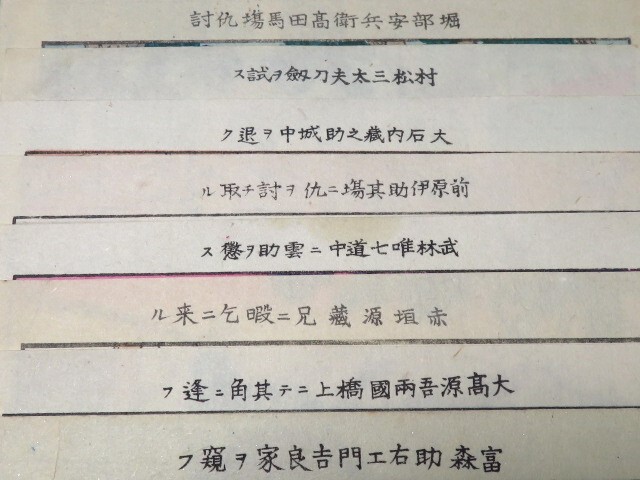 堀部安兵衛髙田馬塲仇討
村松三太夫刀劔ヲ試ス
大石内蔵之助城中ヲ退ク
前原伊助其塲ニ仇ヲ討チ取ル
武林唯七道中ニ雲助ヲ懲ス
赤垣源蔵兄ニ暇乞ニ来ル
大髙源吾兩國橋上ニテ其角ニ逢フ
富森助右エ門吉良家ヲ窺フ